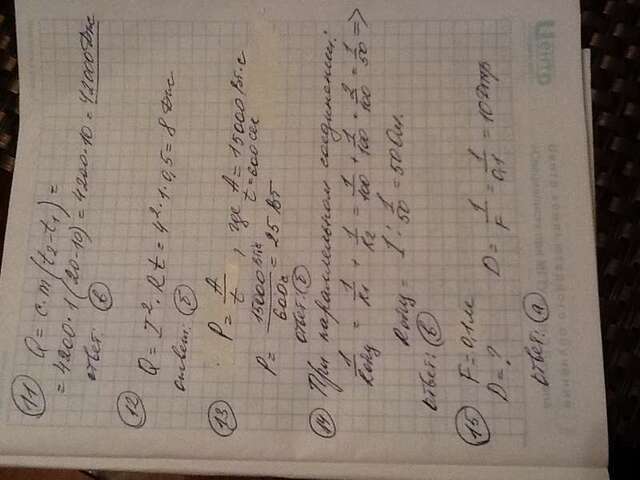 11 Q = c·m(t₂-t₁) =
= 4200·1(20-10) = 4200·10 = 42000 Дж
ответ: в
12 Q = I²·Rt = 4²·1·0,5 = 8 Дж
ответ: б
13 P = A/t, где A = 15000 Вт·с
t = 600 сек
P = 15000 Вт·с/600 с = 25 Вт
ответ: б
14 При параллельном соединении:
1/Rобщ = 1/R₁ + 1/R₂ = 1/100 + 1/100 = 2/100 = 1/50 =>
Rобщ = 1 : 1/50 = 50 Ом.
ответ: б
15 F = 0,1 м
D = ? D = 1/F = 1/0,1 = 10 дптр
ответ: а
Центр